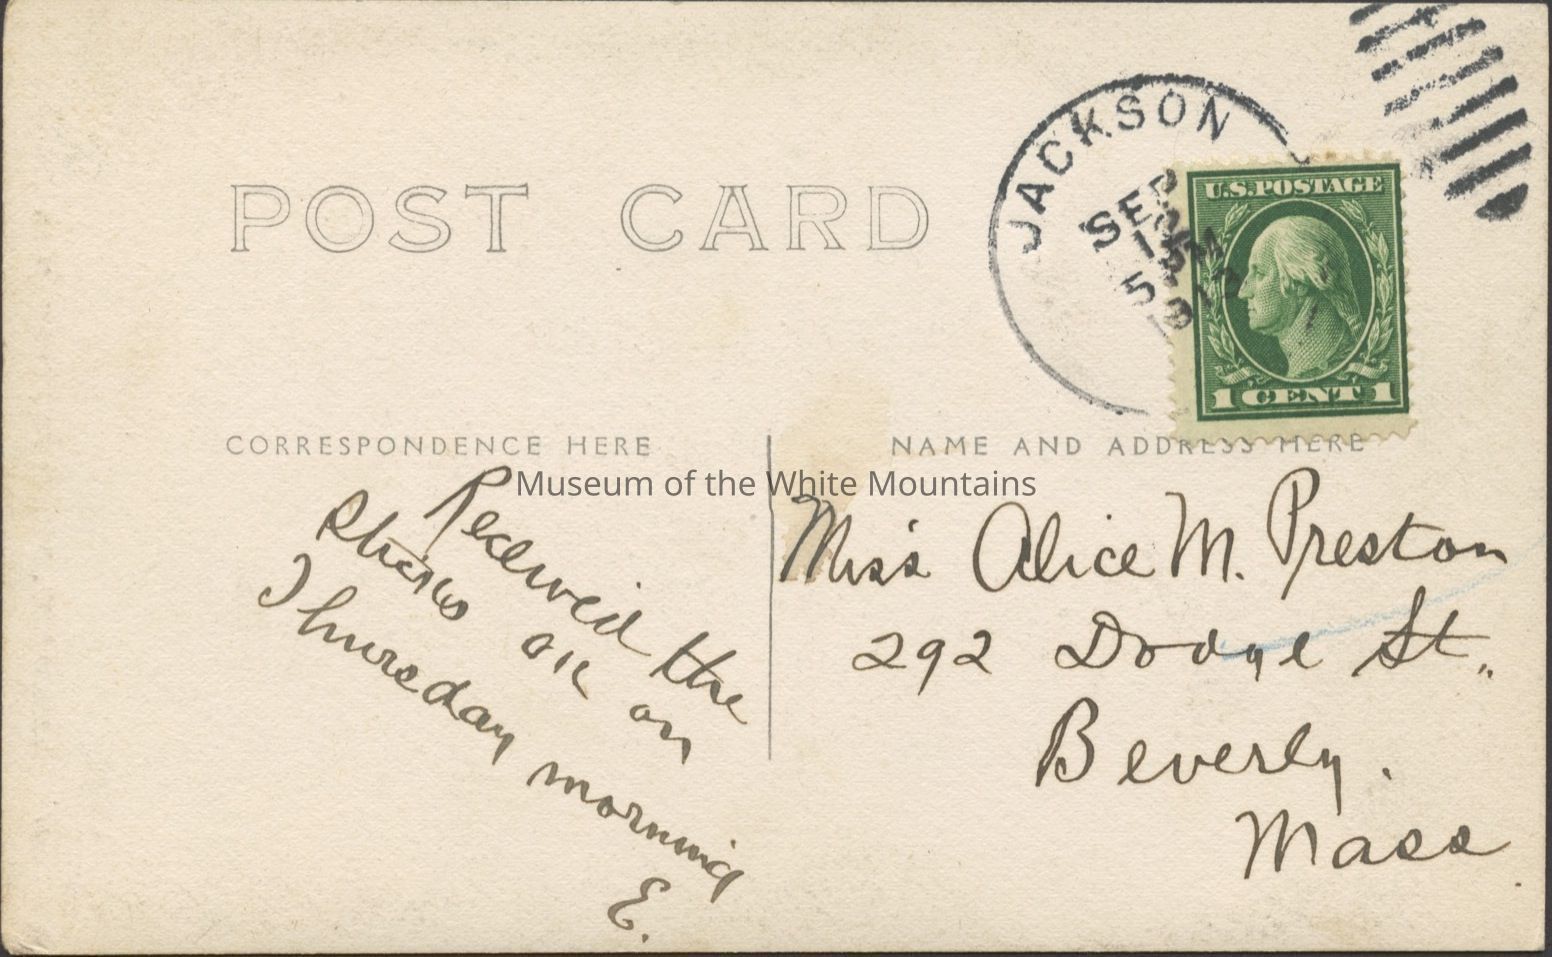 POST CARD
JACKSON
SEP
U.S. POSTAGE
1 CENT 1
CORRESPONDENCE HERE
NAME AND ADDRESS HERE
Museum of the White Mountains
Received the
OK on
Thursday morning
E.
Miss Alice M. Preston
292 Dodge St.,
Beverly.
Mass.